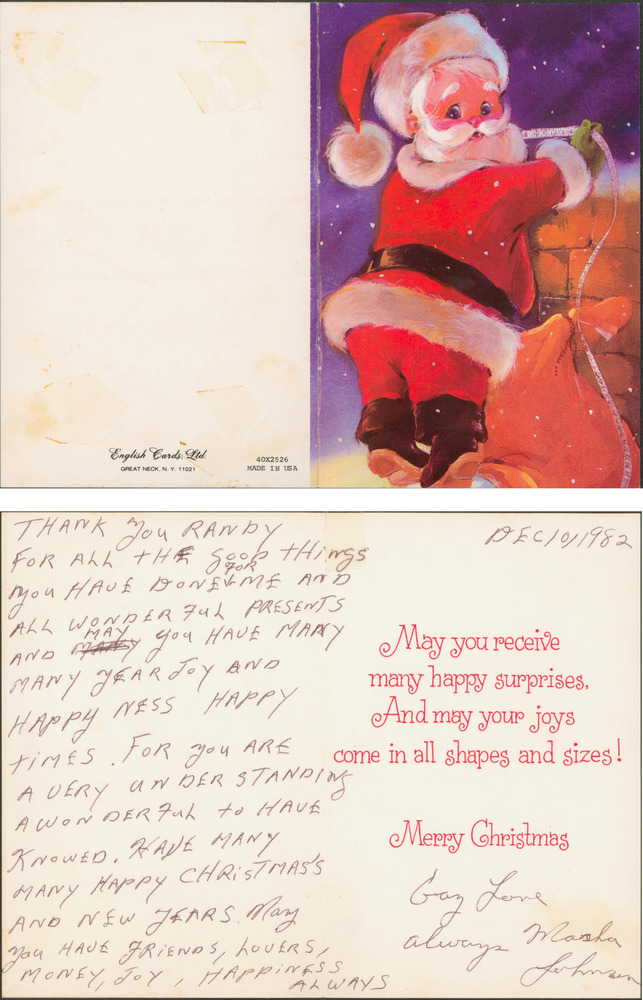 English Cards, Ltd.
GREAT NECK, N. Y. 11021
40X2526
MADE IN USA
THANK you RANDY
FOR ALL tHE good tHings
you HAVE DONE FOR ME AND
ALL WONDERFul PRESENTS
AND MAY you HAVE MANY
MANY yEAR JOY AND
HAPPY NESS HAPPY
tIMES. FOR you ARE
A VERY UNDERSTANDING
A WONDERFul to HAVE
KNOWED. HAVE MANY
MANY HAPPY CHRiSTMAS'S
AND NEW YEARS. May
you HAVE FRIENDS, LOVERS,
MONEY, JOY, HAPPINESS
ALWAYS
DEC/0/1982
May you receive
many happy surprises,
And may your joys
come in all shapes and sizes!
Merry Christmas
Gay Love
always Marsha
Johnson